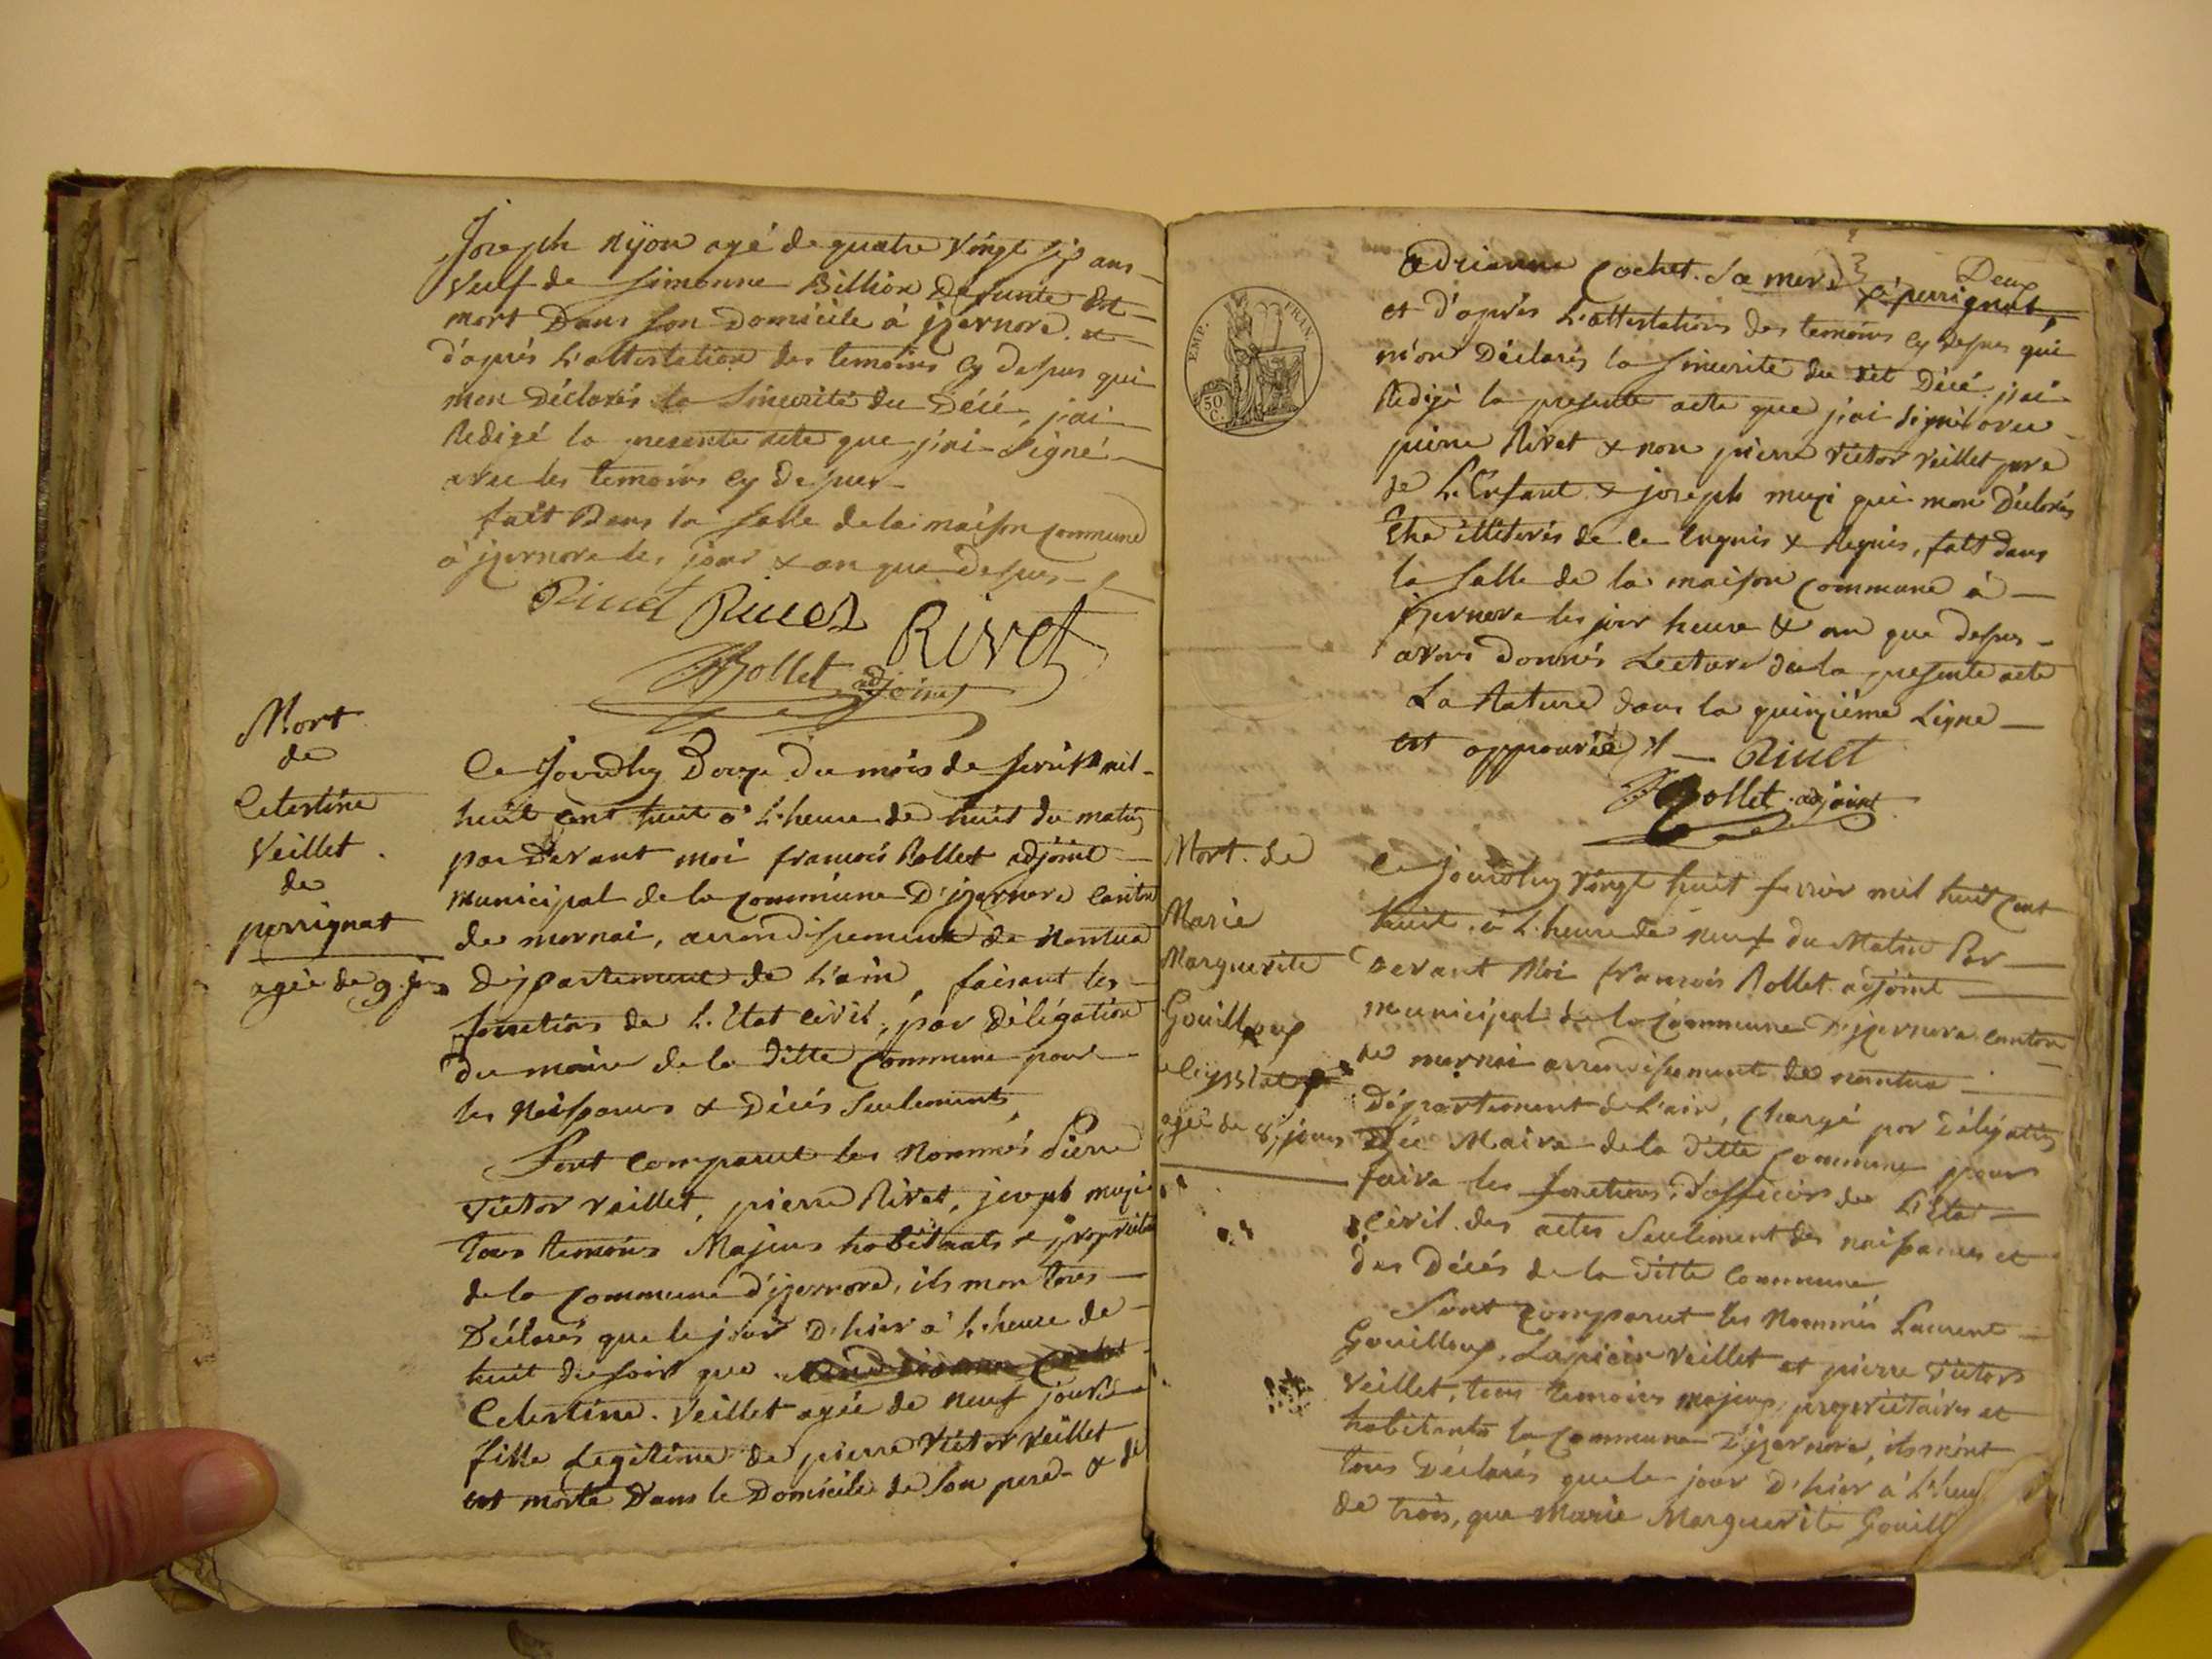 Joseph Nijon agé de quatre Vingt six ans
Veuf de Simonne Billion Defunte Est
mort Dans son Domicile à izernore. et
d'après L'attestation des temoins cy dessus qui
mon Déclarés la Sincerité du Décé, j'ai
Redigé la presente acte que j'ai Signé
avec les temoins cy dessus
fait Dans la salle de la maison commune
à izernore les jour & an que dessus
Rivet Rivet Rivet
Bollet adjoint
Mort
de
Celestine
Veillet
de
perrignat
agée de 9. jours
Ce Jourdhuy Douze du mois de fevrier mil
huit cent huit à L'heure de huit du matin
par Devant moi francois Bollet adjoint
municipal de la commune D'izernore canton
de mornai, arrondissement de Nantua
Département de L'ain, faisant les
fonctions de L'Etat civil, par Déligation
du maire de la ditte commune pour
les Naissances & Décés Seulement,
Sont comparut les Nommés Pierre
Victor Veillet, pierre Rivet, joseph muzi
Tous temoins Majeurs habitants & propriétaires
de la commune d'izernore, ils mon tous
Déclarés que le jour D'hier à L'heure de
huit du soir que
Celestine. Veillet agée de neuf jours
fille Legitime de pierre Victor Veillet
est morte Dans le Domicile de son pere & de
Deux
Adrianne Cochet. Sa mere à perrignat,
et d'après L'attestations des temoins cy dessus qui
m'on Déclarés la Sincerité du dit Décé. j'ai
Redigé la presente acte que j'ai signé avec
pierre Rivet & non pierre Victor Veillet pere
de L'Enfant & joseph muzi qui mon Déclarés
Etre illiterés de ce Enquis & Requis, fait dans
la salle de la maison commune à
izernore les jour heure & an que dessus
avons donnés Lecture de la presente acte
La Rature dans la quinzième Ligne
est approuvée
Rivet
Bollet adjoint
EMP. FRIN.
50 C.
Mort. de
Marie
Marguerite
Gouilloux
de Ceyssiat
agée de 8, jours
Ce Jourdhuy Vingt huit fevrier mil huit cent
huit. à L'heure de neuf du Matin Par
Devant Moi francois Bollet adjoint
municipal de la commune D'izernore canton
de mornai arrondissement de nantua
Département de L'ain, Chargé par Déligation
Du Maire de la ditte commune pour
faire les fonctions d'officier de L'Etat
civil. des actes Seulement des naissances et
des Décés de la ditte commune
Sont comparut les Nommés Laurent
Gouilloux, Veillet et pierre Victor
Veillet, tous temoins majeurs, propriétaires et
habitants la commune D'izernore, ils m'ont
tous Déclarés que le jour D'hier à L'heu
de trois, que Marie Marguerite Gouill